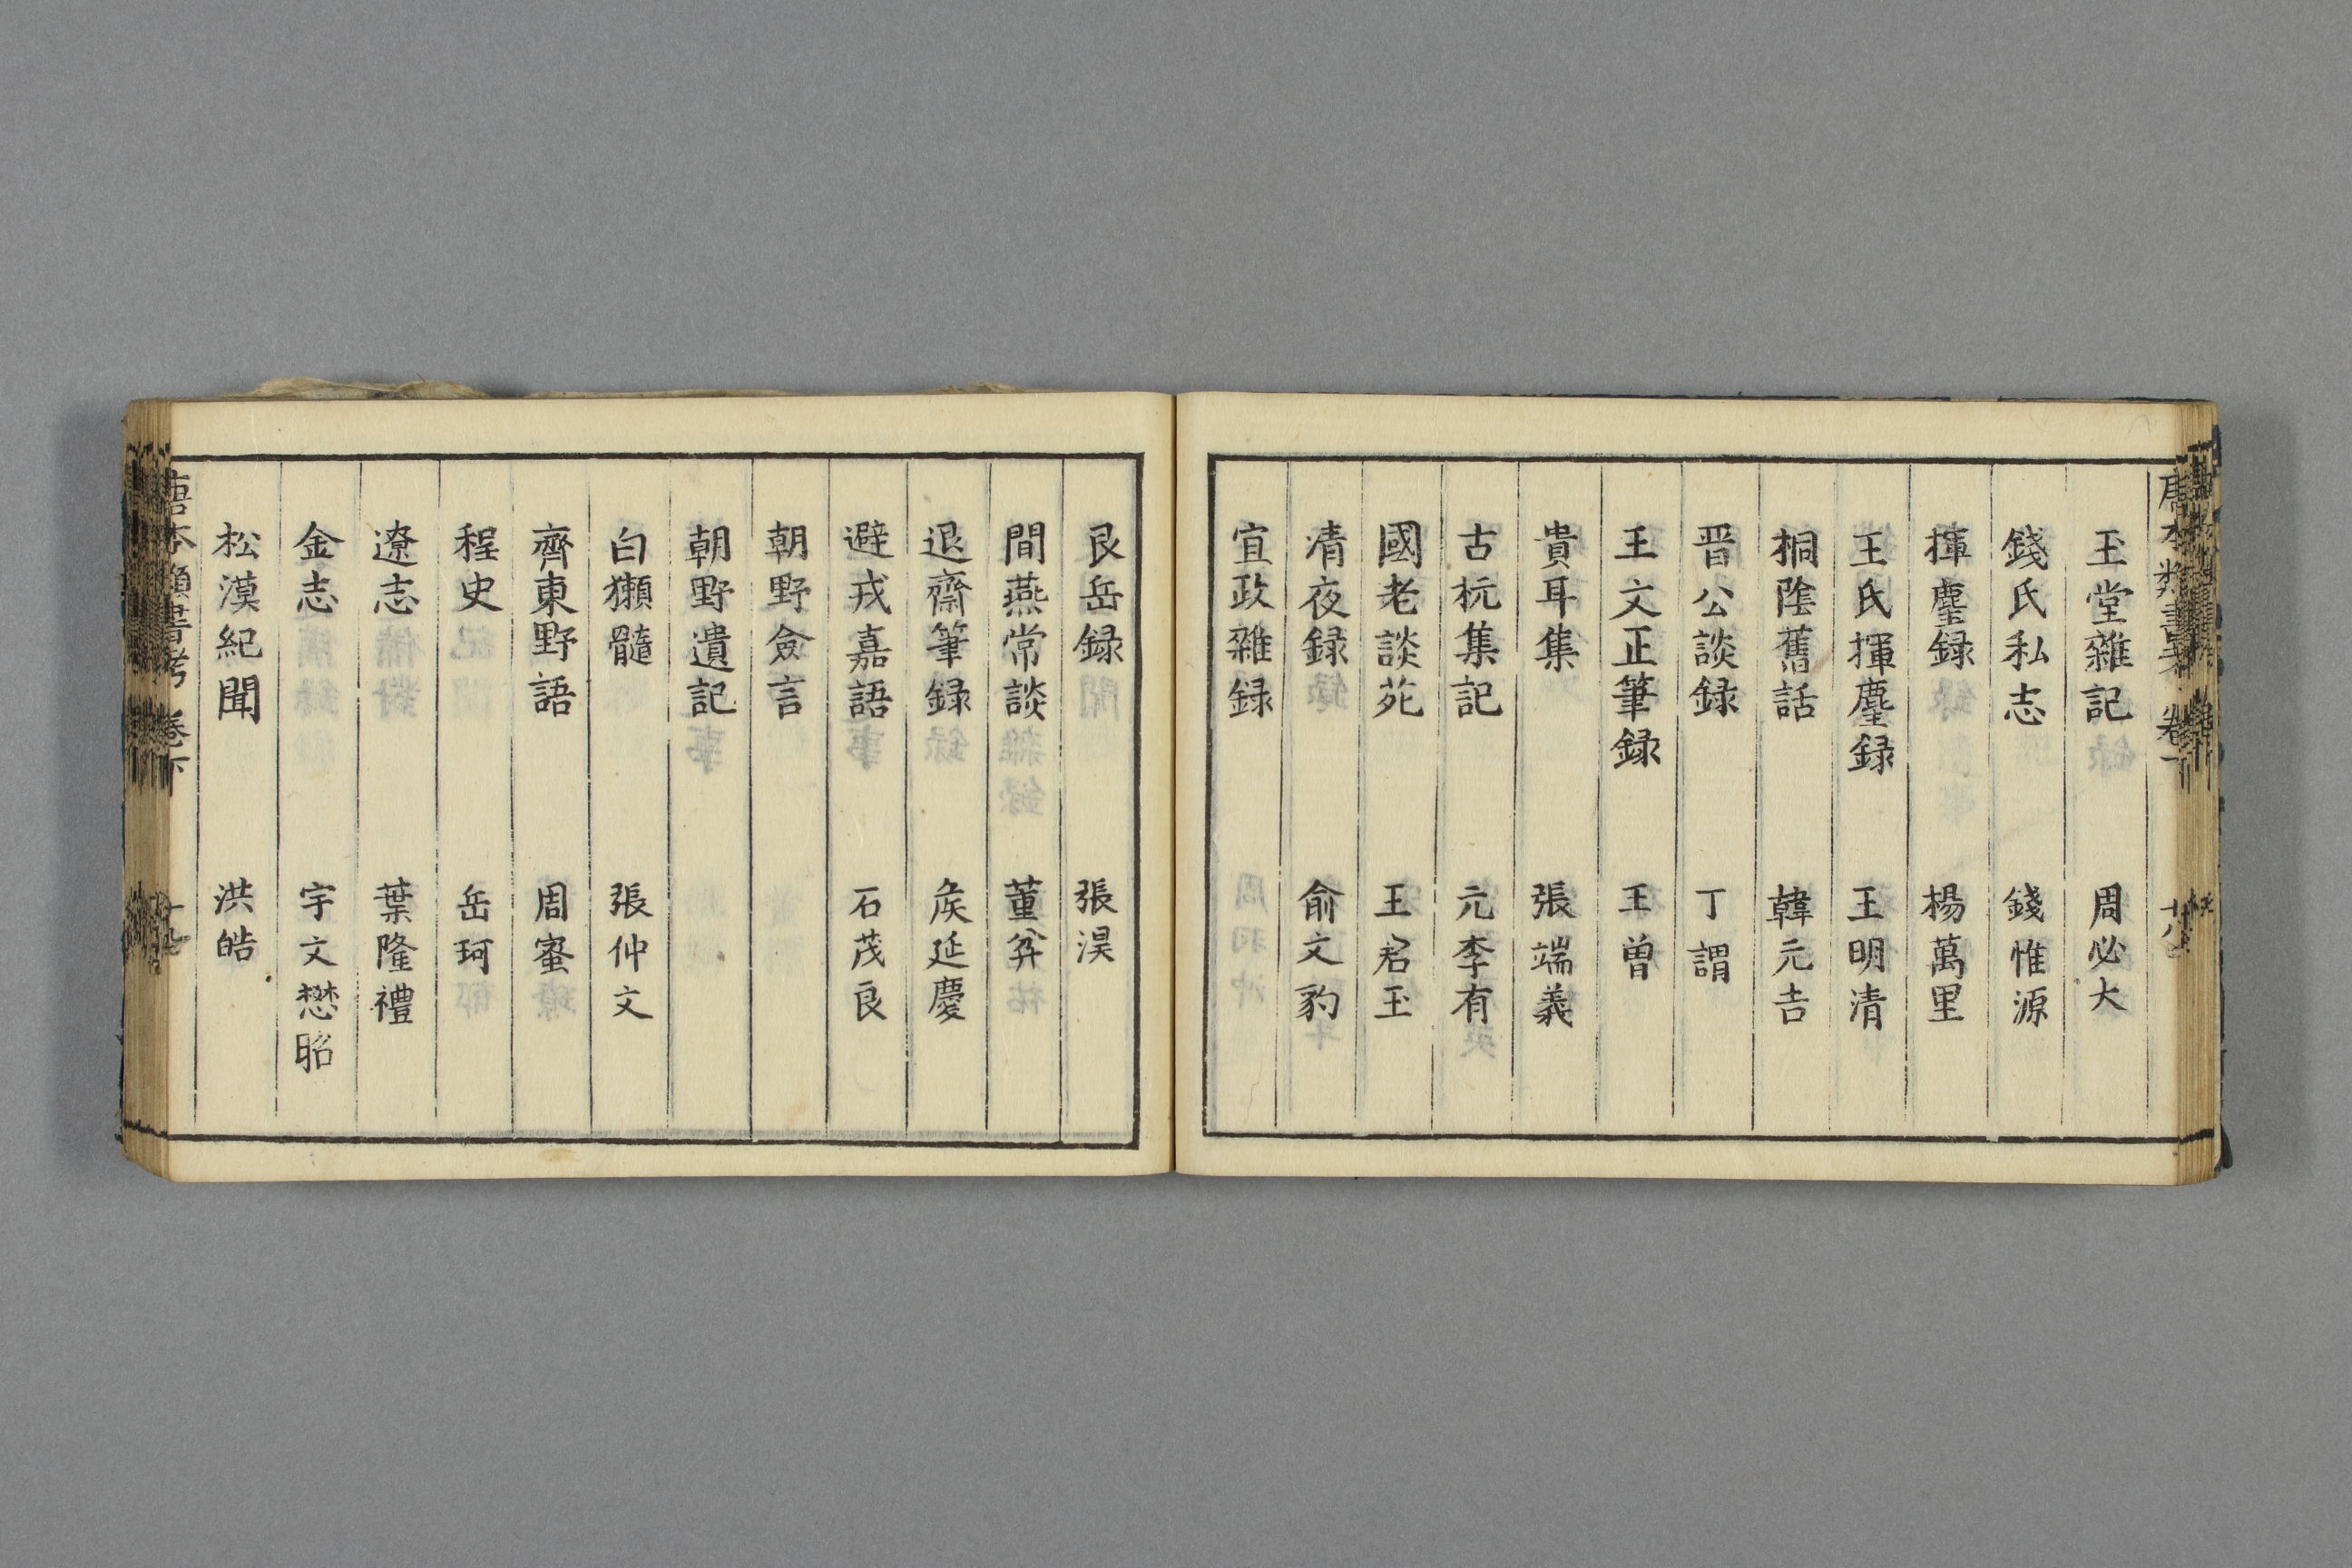 玉堂雜記 周必大
錢氏私志 錢惟源
揮麈録 楊萬里
王氏揮麈録 王明清
桐陰舊話 韓元吉
晋公談録 丁謂
王文正筆録 王曽
貴耳集 張端義
古杬集記 元李有
國老談苑 王君玉
清夜録 俞文豹
宣政雜録
艮岳録 張淏
間燕常談 董弅
退齋筆録 矦延慶
避戎嘉語 石茂良
朝野僉言
朝野遺記
白獺髓 張仲文
齊東野語 周蜜
桯史 岳珂
遼志 葉隆禮
金志 宇文懋昭
松漠紀聞 洪皓
唐本類書考 卷下